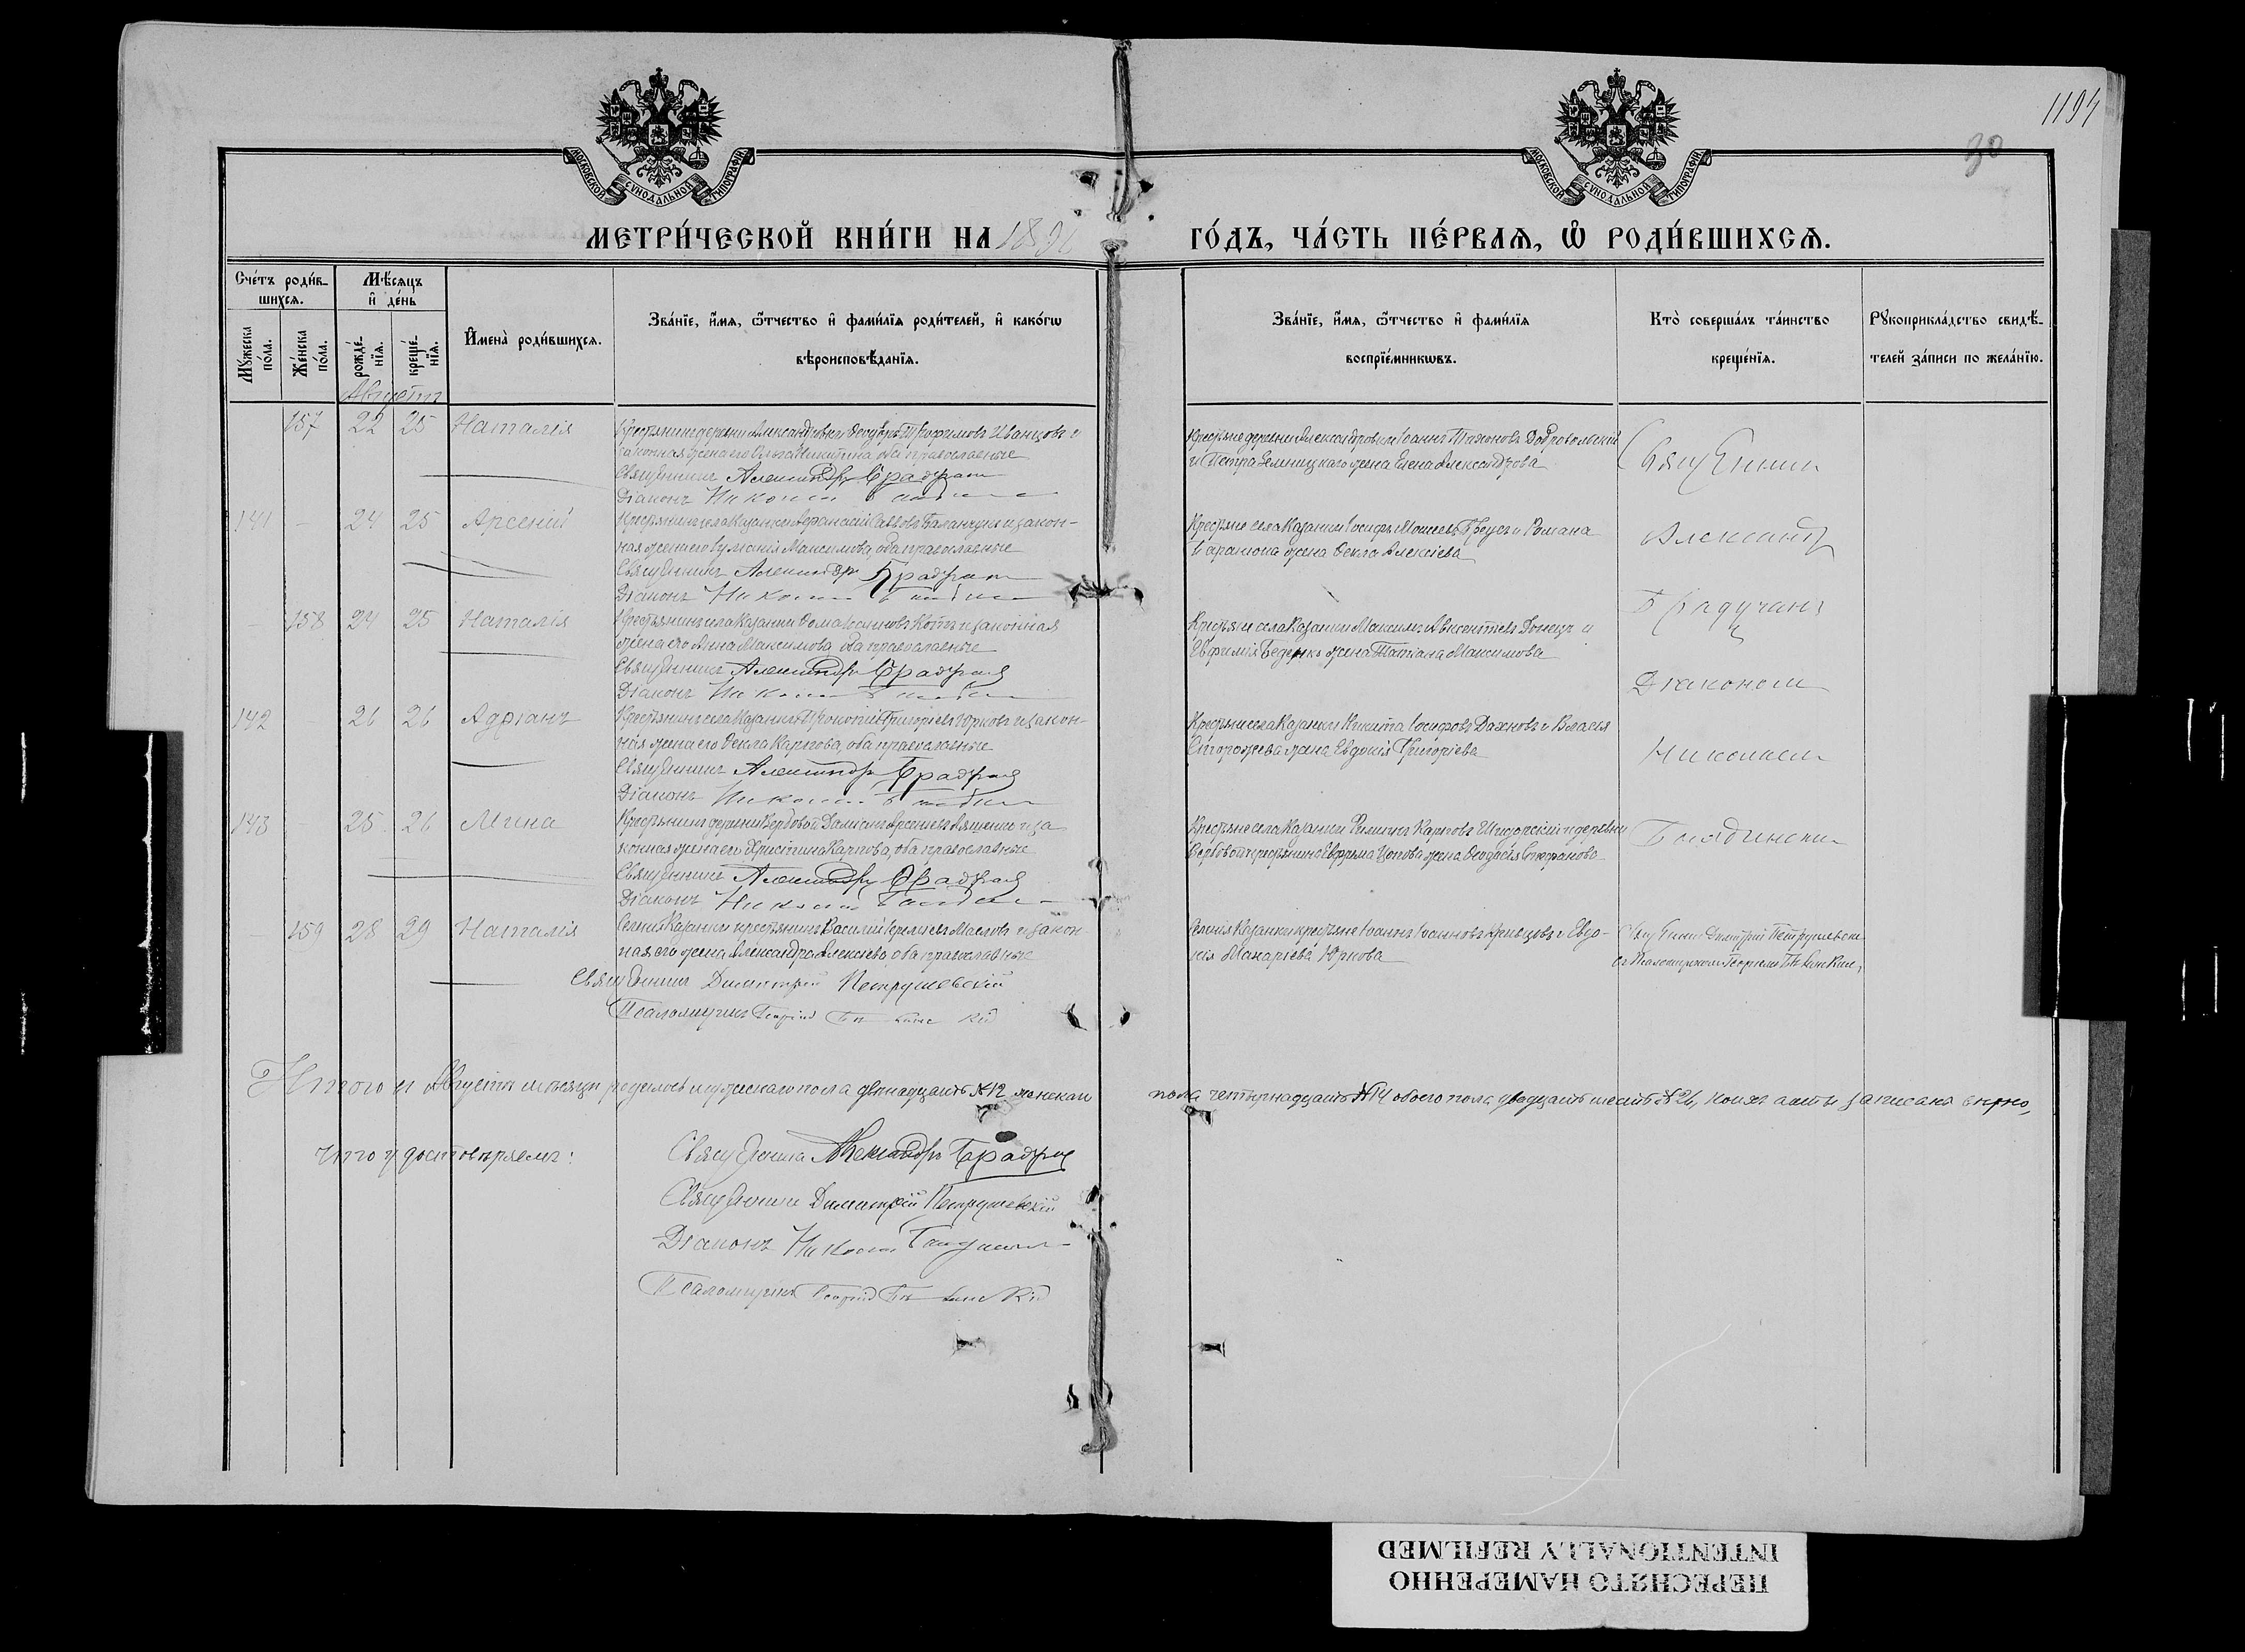 1194
30
МОСКОВСКОЙ СѴНОДАЛЬНОЙ ТИПОГРАФІИ
МОСКОВСКОЙ СѴНОДАЛЬНОЙ ТИПОГРАФІИ
МЕТРИ́ЧЕСКОЙ КНИ́ГИ НА 189
ГО́ДЪ, ЧА́СТЬ ПЕ́РВАѦ, Ѡ РОДИ́ВШИХСѦ.
Сче́тъ роди́в-
шихсѧ.
Мꙋжеска по́ла.
Же́нска по́ла.
Мѣ́сѧцъ
и҆ де́нь
рожде́-нїѧ.
креще́-нїѧ.
И҆мена̀ роди́вшихсѧ.
Зва́нїе, и҆́мѧ, ѻ҆́тчество и҆ фами́лїѧ роди́телей, и҆ како́гѡ
вѣроисповѣ́данїѧ.
Зва́нїе, и҆́мѧ, ѻ҆́тчество и҆ фами́лїѧ
воспрїе́мникѡвъ.
Кто̀ соверша́лъ та́инство
креще́нїѧ.
Рꙋкоприкла́дство свидѣ́-
телей за́писи по жела́нїю.
Августъ
157 22 25 Наталія
Крестьянинъ деревни Александровки Ѳеодоръ Трофимовъ Иванцовъ и
законная жена его Ольга Никитина оба православные
Священникъ Александръ Брадучанъ
Діаконъ Николай
Крестьяне деревни Александровки Іоаннъ Тихоновъ Добровольскій
и Петра Зелницкаго жена Елена Александрова
Священникъ
141 – 24 25 Арсеній
Крестьянинъ села Казанки Аѳанасій Саввовъ Баланчукъ и закон-
ная жена его Іуліанія Максимова, оба православные
Священникъ Александръ Брадучанъ
Діаконъ Николай
Крестьяне села Казанки Іосифъ Моисеевъ и Романа
жена Ѳекла Алексіева
Александръ
Брадучанъ
– 158 24 25 Наталія
Крестьянинъ села Казанки Ѳома Іоанновъ Котъ и законная
жена его Анна Максимова, оба православные
Священникъ Александръ Брадучанъ
Діаконъ Николай
Крестьяне села Казанки Максимъ Авксентіевъ Донецъ и
Евфимія Беденко жена Татіана Максимова
Діакономъ
142 – 26 26 Адріанъ
Крестьянинъ села Казанки Прокопій Григоріевъ Юрковъ и закон-
ная жена его Ѳекла Карпова, оба православные
Священникъ Александръ Брадучанъ
Діаконъ Николай
Крестьяне села Казанки Никита Іосифовъ Дахновъ и Власія
Сторожева жена Евдокія Григоріева
Николаемъ
143 – 25 26 Мина
Крестьянинъ деревни Вербовой Даміанъ Арсеніевъ Ляшенко и за
конная жена его Христина Карпова, оба православные
Священникъ Александръ Брадучанъ
Діаконъ Николай
Крестьяне села Казанки Филиппъ Карповъ и деревни
Вербовой крестьянина Ефрема жена Ѳеодосія Стефанова
– 159 28 29 Наталія
Селенія Казанки крестьянинъ Василій Масловъ и закон
ная его жена Александра Алексіева, оба православные
Священникъ Димитрій Петрушевскій
Псаломщикъ Георгій
Селенія Казанки крестьяне Іоаннъ Іоанновъ Кривцовъ и Евдо-
кія Макаріева Юркова
Священникъ Димитрій Петрушевскій
съ Псаломщикомъ Георгіемъ
Итого въ Августѣ мѣсяцѣ родилось мужескаго пола двѣнадцать №12 женскаго
пола четырнадцать №14 обоего пола двадцать шесть №26, коихъ акты записаны вѣрно,
что удостовѣряемъ:
Священникъ Александръ Брадучанъ
Священникъ Димитрій Петрушевскій
Діаконъ Николай
Псаломщикъ Георгій
ПЕРЕСНЯТО НАМЕРЕННО
INTENTIONALLY REFILMED